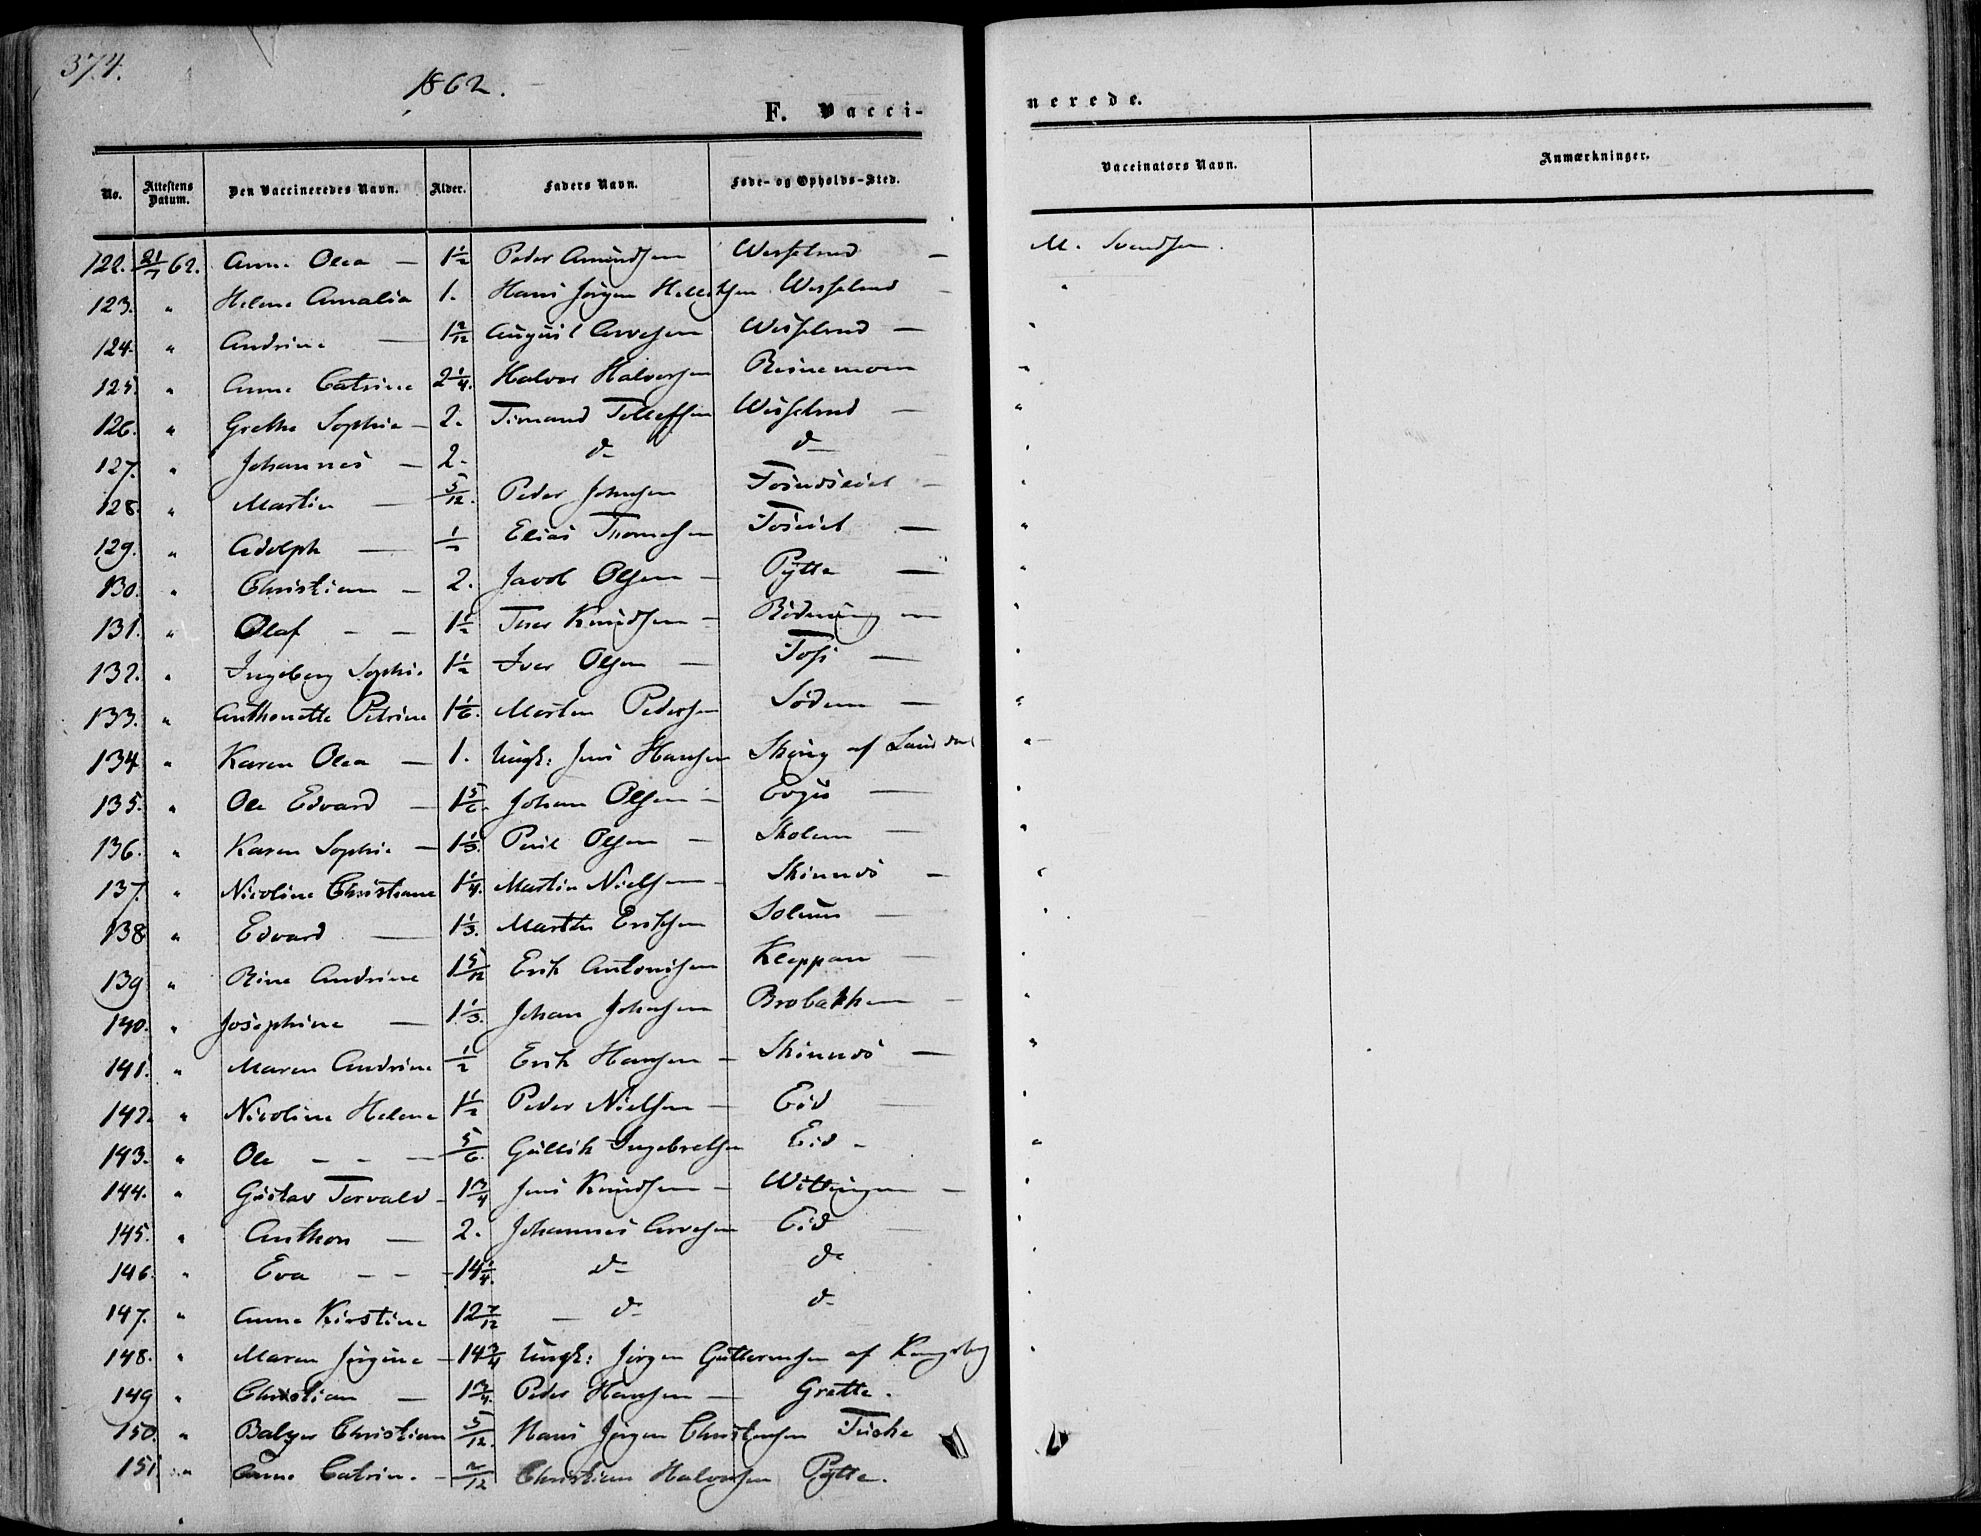 374.
1862.
F. Vacci-
nerede.
No. Attestens Datum. Den Vaccineredes Navn. Alder. Faders Navn. Føde- og Opholds-Sted. Vaccinators Navn. Anmærkninger.
122. 21/7 62. Anne Olea — 1 1/2 Peder Amundsen Wesselrud — M. Svendsen.
123. " Helene Amalia 1. Hans Jörgen Wesselrud — "
124. " Andrine — 1 2/12 August Arvesen Wesselrud — "
125. " Anne Catrine 2 1/4. Halvor Halvorsen "
126. " Grethe Sophie — 2. Simand Tollefsen Wesselrud — "
127. " Johannes — 2. d— d— "
128. " Martin — 5/12. Peder Johnsen "
129. " Adolph — 1/2 Elias Thomesen — "
130. " Christian — 2. Jacob Olsen — Pytte — "
131. " Olaf — — 1 1/2 Knudsen — "
132. " Ingeborg Sophie 1 1/2 Iver Olsen — Foss — "
133. " Anthonette Petrine 1 1/6. Morten Pedersen Södem — "
134. " Karen Olea — 1. Ungk: Jens Hansen af "
135. " Ole Edvard — 1 5/6. Johan Olsen — — "
136. " Karen Sophie — 1 1/3. Paul Olsen — — "
137. " Nicoline Christiane 1 1/4. Martin Nielsen — Skinnes — "
138 " Edvard — 1 1/3. Eriksen Solum — "
139 " Rine Andrine 1 5/12 Erik Antonisen Kleppan — "
140. " Josephine — 1 1/3. Johan Johnsen Brobakken — "
141. " Maren Andrine 1/2 Erik Hansen — Skinnes — "
142. " Nicoline Helene 1 1/2 Peder Nielsen — Eid — "
143. " Ole — — — 5/6. Gullik Ingebretsen Eid — "
144. " Gustav Torvald — 1 3/4 Jens Knudsen — Wittingen — "
145. " Anthon — 2. Johannes Arvesen Eid — "
146. " Eva — — — 14 1/4. d— d— "
147. " Anne Kirstine 12 7/12 — d— d— "
148. " Maren Jörgine — 14 3/4 Ungk: Jörgen Guttormsen af Kongsberg "
149 " Christian — 1 3/4. Peder Hansen — Grette.
150. " Balzer Christian 5/12. Hans Jörgen Christensen
151. " Anne Catrine — 2/12 Christian Halvorsen Pytte.